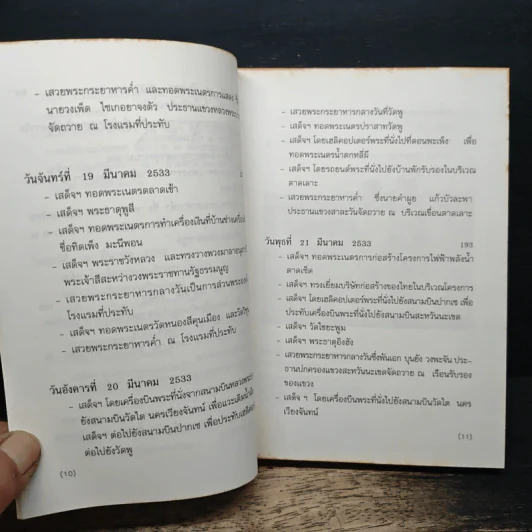 - เสวยพระกระยาหารค่ำ และทอดพระเนตรการแสดง
นายวงเพ็ด ไซเกอยาจงตัว ประธานแขวงหลวงพระ
จัดถวาย ณ โรงแรมที่ประทับ
วันจันทร์ที่ 19 มีนาคม 2533
- เสด็จฯ ทอดพระเนตรตลาดเช้า
- เสด็จฯ พระธาตุพูสี
- เสด็จฯ ทอดพระเนตรการทำเครื่องเงินที่บ้านช่างเครื่อง
ชื่อทิดเพ็ง มะนีพอน
- เสด็จฯ พระราชวังหลวง และทรงวางพวงมาลา
พระเจ้าสีสะหว่างวงพระราชทานรัฐธรรมนูญ
- เสวยพระกระยาหารกลางวันเป็นการส่วนพระองค์
โรงแรมที่ประทับ
- เสด็จฯ ทอดพระเนตรวัดหนองสีคุนเมือง และวัด
- เสวยพระกระยาหารค่ำ ณ โรงแรมที่ประทับ
วันอังคารที่ 20 มีนาคม 2533
- เสด็จฯ โดยเครื่องบินพระที่นั่งจากสนามบินหลวงพระ
ยังสนามบินวัดไต นครเวียงจันทน์ เพื่อแวะเติมน้ำมัน
เสด็จฯ ต่อไปยังสนามบินปากเซ เพื่อประทับ
ต่อไปยังวัดพู
(10)
- เสวยพระกระยาหารกลางวันที่วัดพู
- เสด็จฯ ทอดพระเนตรปราสาทวัดพู
- เสด็จฯ โดยเฮลิคอปเตอร์พระที่นั่งไปที่ดอนพะเพ็ง เพื่อ
ทอดพระเนตรน้ำตกหลี่ผี
- เสด็จฯ โดยรถยนต์พระที่นั่งไปยังบ้านพักรับรองในบริเวณ
ตาดเลาะ
- เสวยพระกระยาหารค่ำ ซึ่งนายคำผูย แก้วบัวละพา
ประธานแขวงสาละวันจัดถวาย ณ บริเวณเขื่อนตาดเลาะ
วันพุธที่ 21 มีนาคม 2533 193
- เสด็จฯ ทอดพระเนตรการก่อสร้างโครงการไฟฟ้าพลังน้ำ
ตาดเซ็ด
- เสด็จฯ ทรงเยี่ยมบริษัทก่อสร้างของไทยในบริเวณโครงการ
- เสด็จฯ โดยเฮลิคอปเตอร์พระที่นั่งไปยังสนามบินปากเซ เพื่อ
ประทับเครื่องบินพระที่นั่งไปยังสนามบินสะหวันนะเขต
- เสด็จฯ วัดไชยะพูม
- เสด็จฯ พระธาตุอิงฮัง
- เสวยพระกระยาหารกลางวันซึ่งพันเอก บุนยัง วงพะจัน ประ-
ธานปกครองแขวงสะหวันนะเขตจัดถวาย ณ เรือนรับรอง
ของแขวง
- เสด็จฯ โดยเครื่องบินพระที่นั่งไปยังสนามบินวัดไต นคร
เวียงจันทน์
(11)